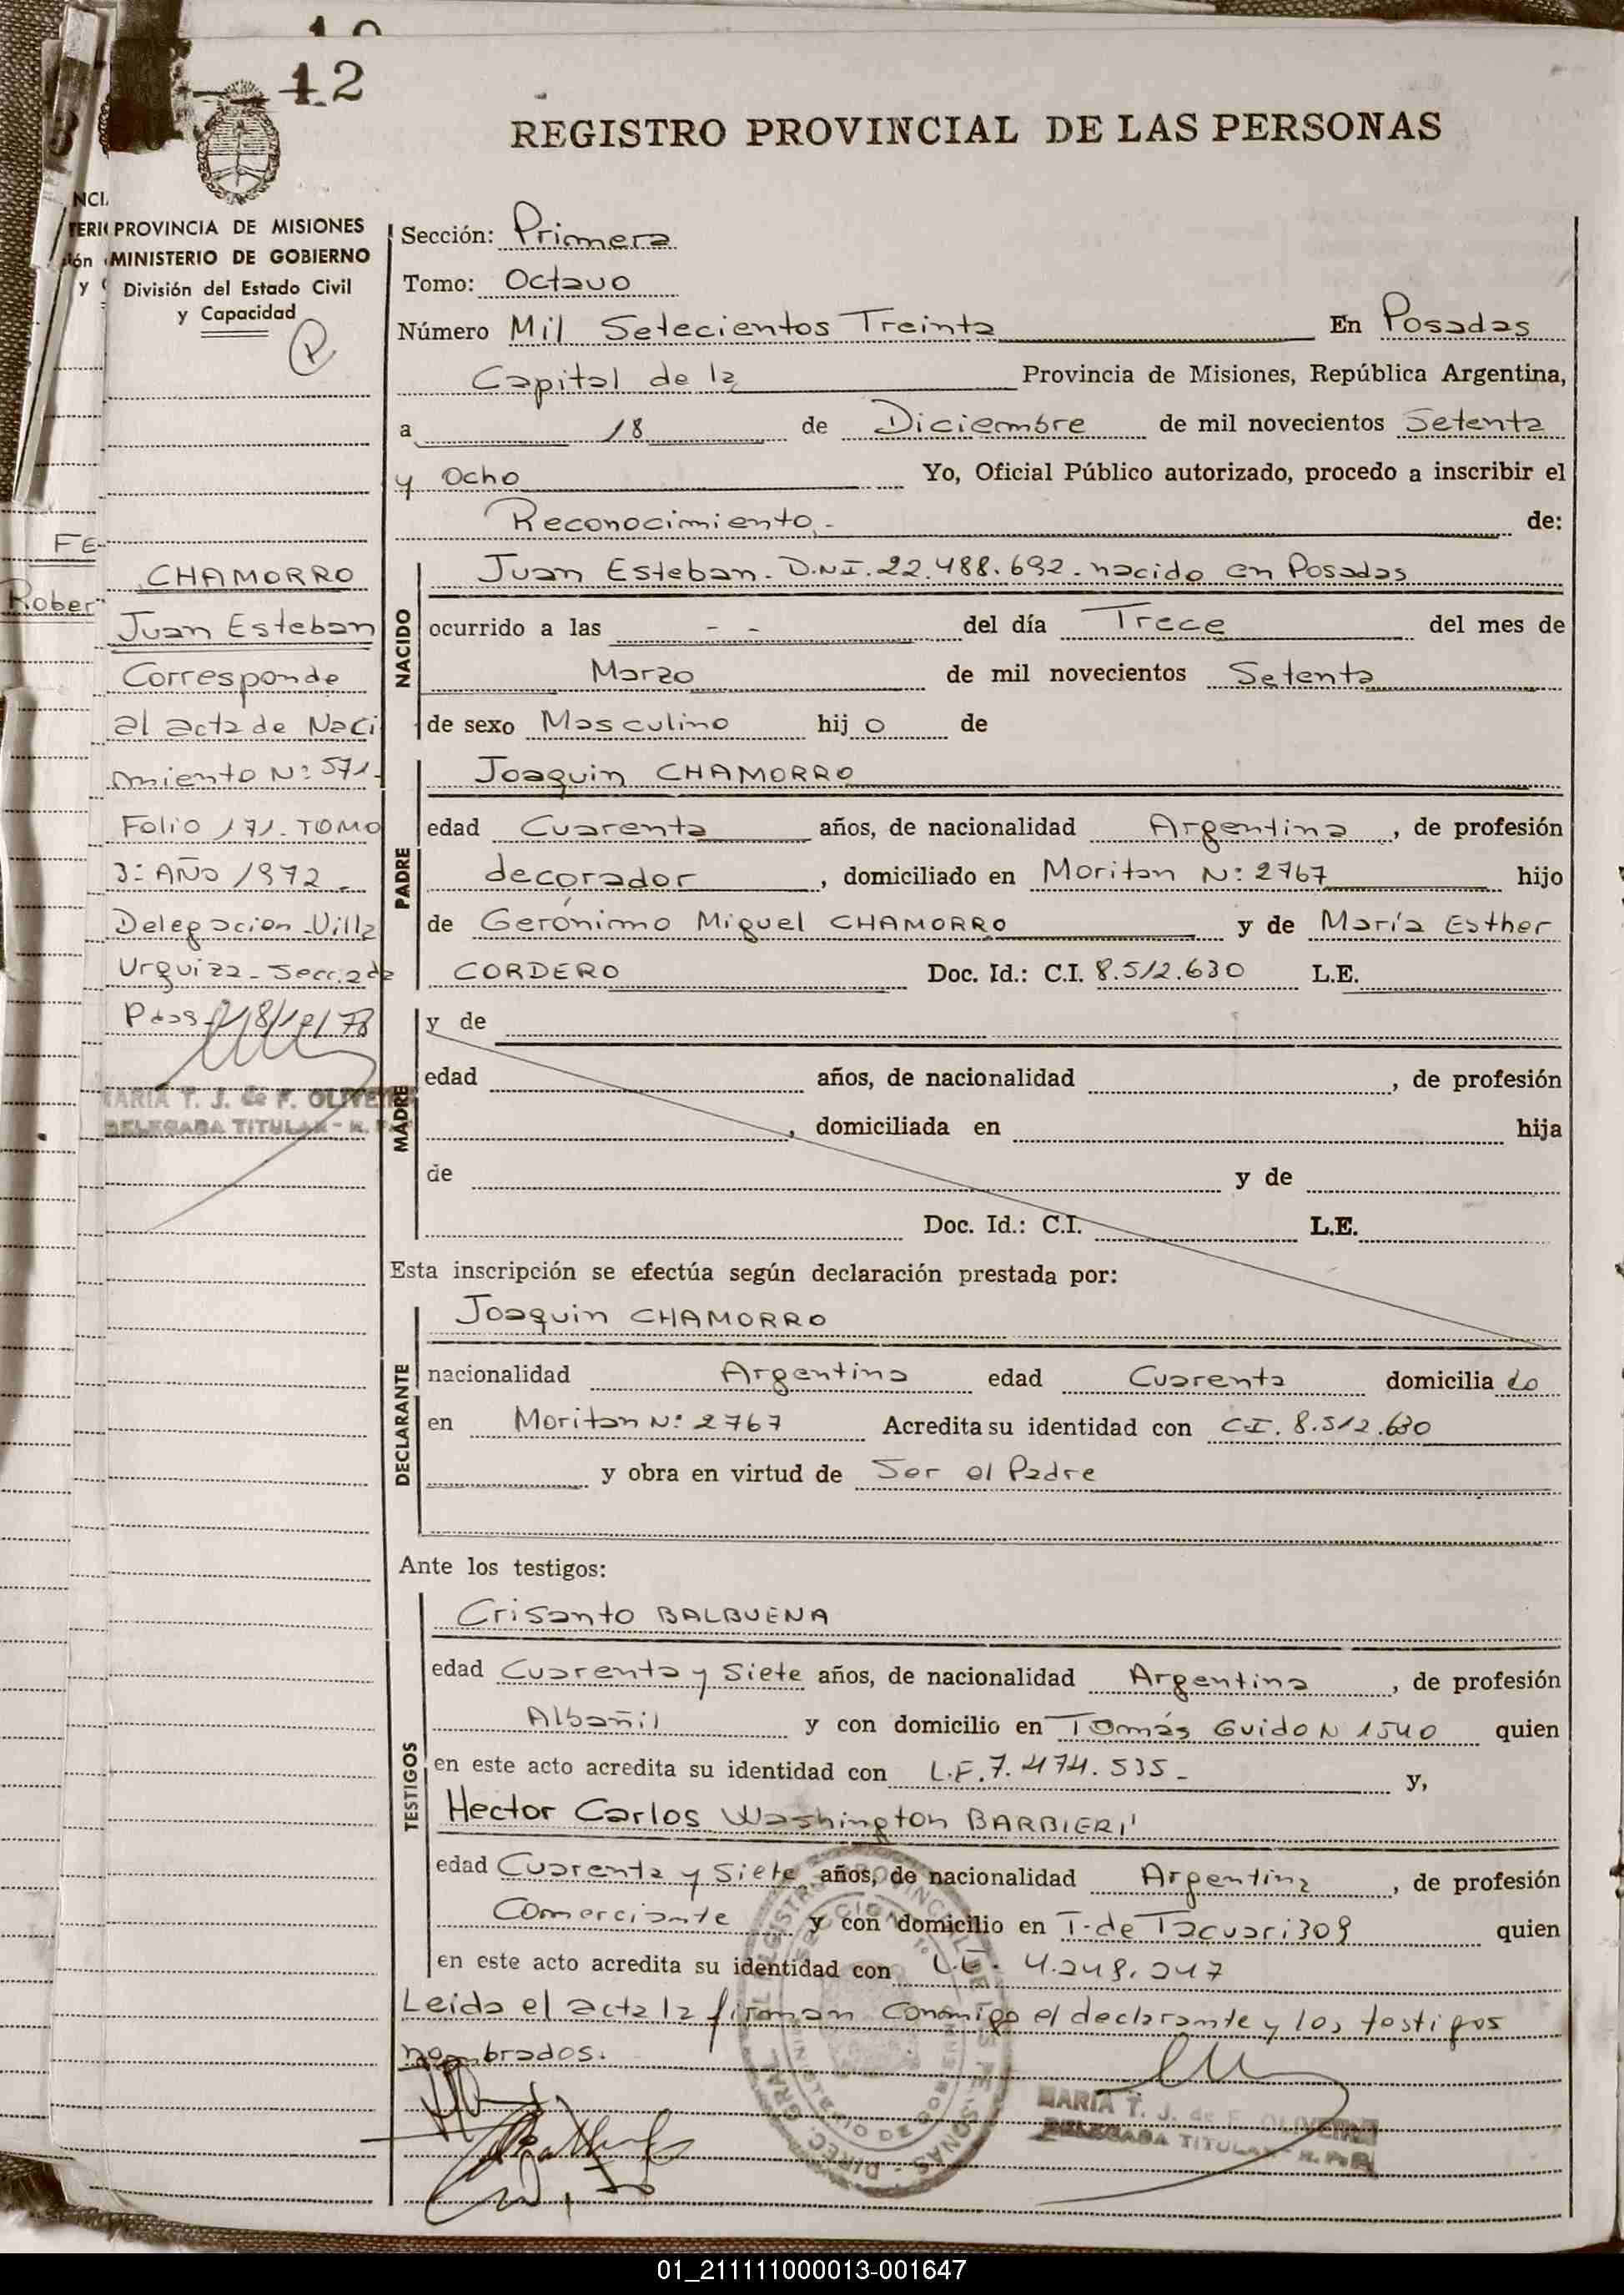 12
REGISTRO PROVINCIAL DE LAS PERSONAS
PROVINCIA DE MISIONES
MINISTERIO DE GOBIERNO
División del Estado Civil
y Capacidad
CHAMORRO
Juan Esteban
Corresponde
al acta de Naci
miento Nº 571-
Folio 171. TOMO
3º AÑO 1972.
Delegacion Villa
Urquiza - Secc. 2da
Pdas. 18/12/78
MARIA T. J. de F. OLIVEIRA
DELEGADA TITULAR - R. P. P.
Sección: Primera
Tomo: Octavo
Número Mil Setecientos Treinta En Posadas
Capital de la Provincia de Misiones, República Argentina,
a 18 de Diciembre de mil novecientos Setenta
y Ocho Yo, Oficial Público autorizado, procedo a inscribir el
Reconocimiento.- de:
NACIDO
Juan Esteban. D.N.I. 22.488.692. nacido en Posadas
ocurrido a las - - del día Trece del mes de
Marzo de mil novecientos Setenta
de sexo Masculino hij o de
PADRE
Joaquin CHAMORRO
edad Cuarenta años, de nacionalidad Argentina, de profesión
decorador, domiciliado en Moritan Nº 2767 hijo
de Gerónimo Miguel CHAMORRO y de María Esther
CORDERO Doc. Id.: C.I. 8.512.630 L.E.
MADRE
y de
edad años, de nacionalidad , de profesión
, domiciliada en hija
de y de
Doc. Id.: C.I. L.E.
Esta inscripción se efectúa según declaración prestada por:
DECLARANTE
Joaquin CHAMORRO
nacionalidad Argentina edad Cuarenta domicilia do
en Moritan Nº 2767 Acredita su identidad con C.I. 8.512.630
y obra en virtud de Ser el Padre
Ante los testigos:
TESTIGOS
Crisanto BALBUENA
edad Cuarenta y Siete años, de nacionalidad Argentina, de profesión
Albañil y con domicilio en Tomás Guido N 1540 quien
en este acto acredita su identidad con L.E. 7.474.535- y,
Hector Carlos Washington BARBIERI
edad Cuarenta y Siete años, de nacionalidad Argentina, de profesión
Comerciante y con domicilio en T. de Tacuari 309 quien
en este acto acredita su identidad con L.E. 4.249.247
Leida el acta la firman conmigo el declarante y los testigos
nombrados.
MARIA T. J. de F. OLIVEIRA
DELEGADA TITULAR - R. P. P.
01_211111000013-001647